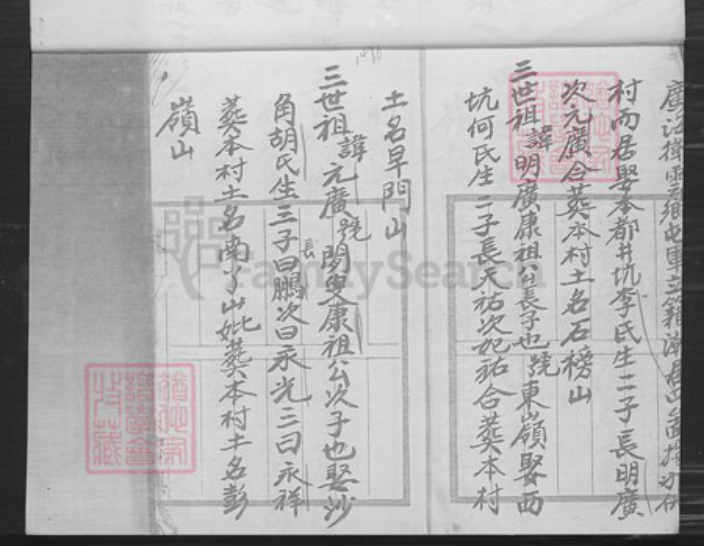 村而居娶本都井坑李氏生二子長明廣
次元廣合葬本村土名石榜山
三世祖諱明廣康祖公長子也號東嶺娶西
坑何氏生二子長天祐次妃祐合葬本村
土名早門山
三世祖諱元廣號閑叟康祖公次子也娶沙
角胡氏生三子長曰鵬次曰永光三曰永祥
葬本村土名南了山妣葬本村土名彭
嶺山
FamilySearch